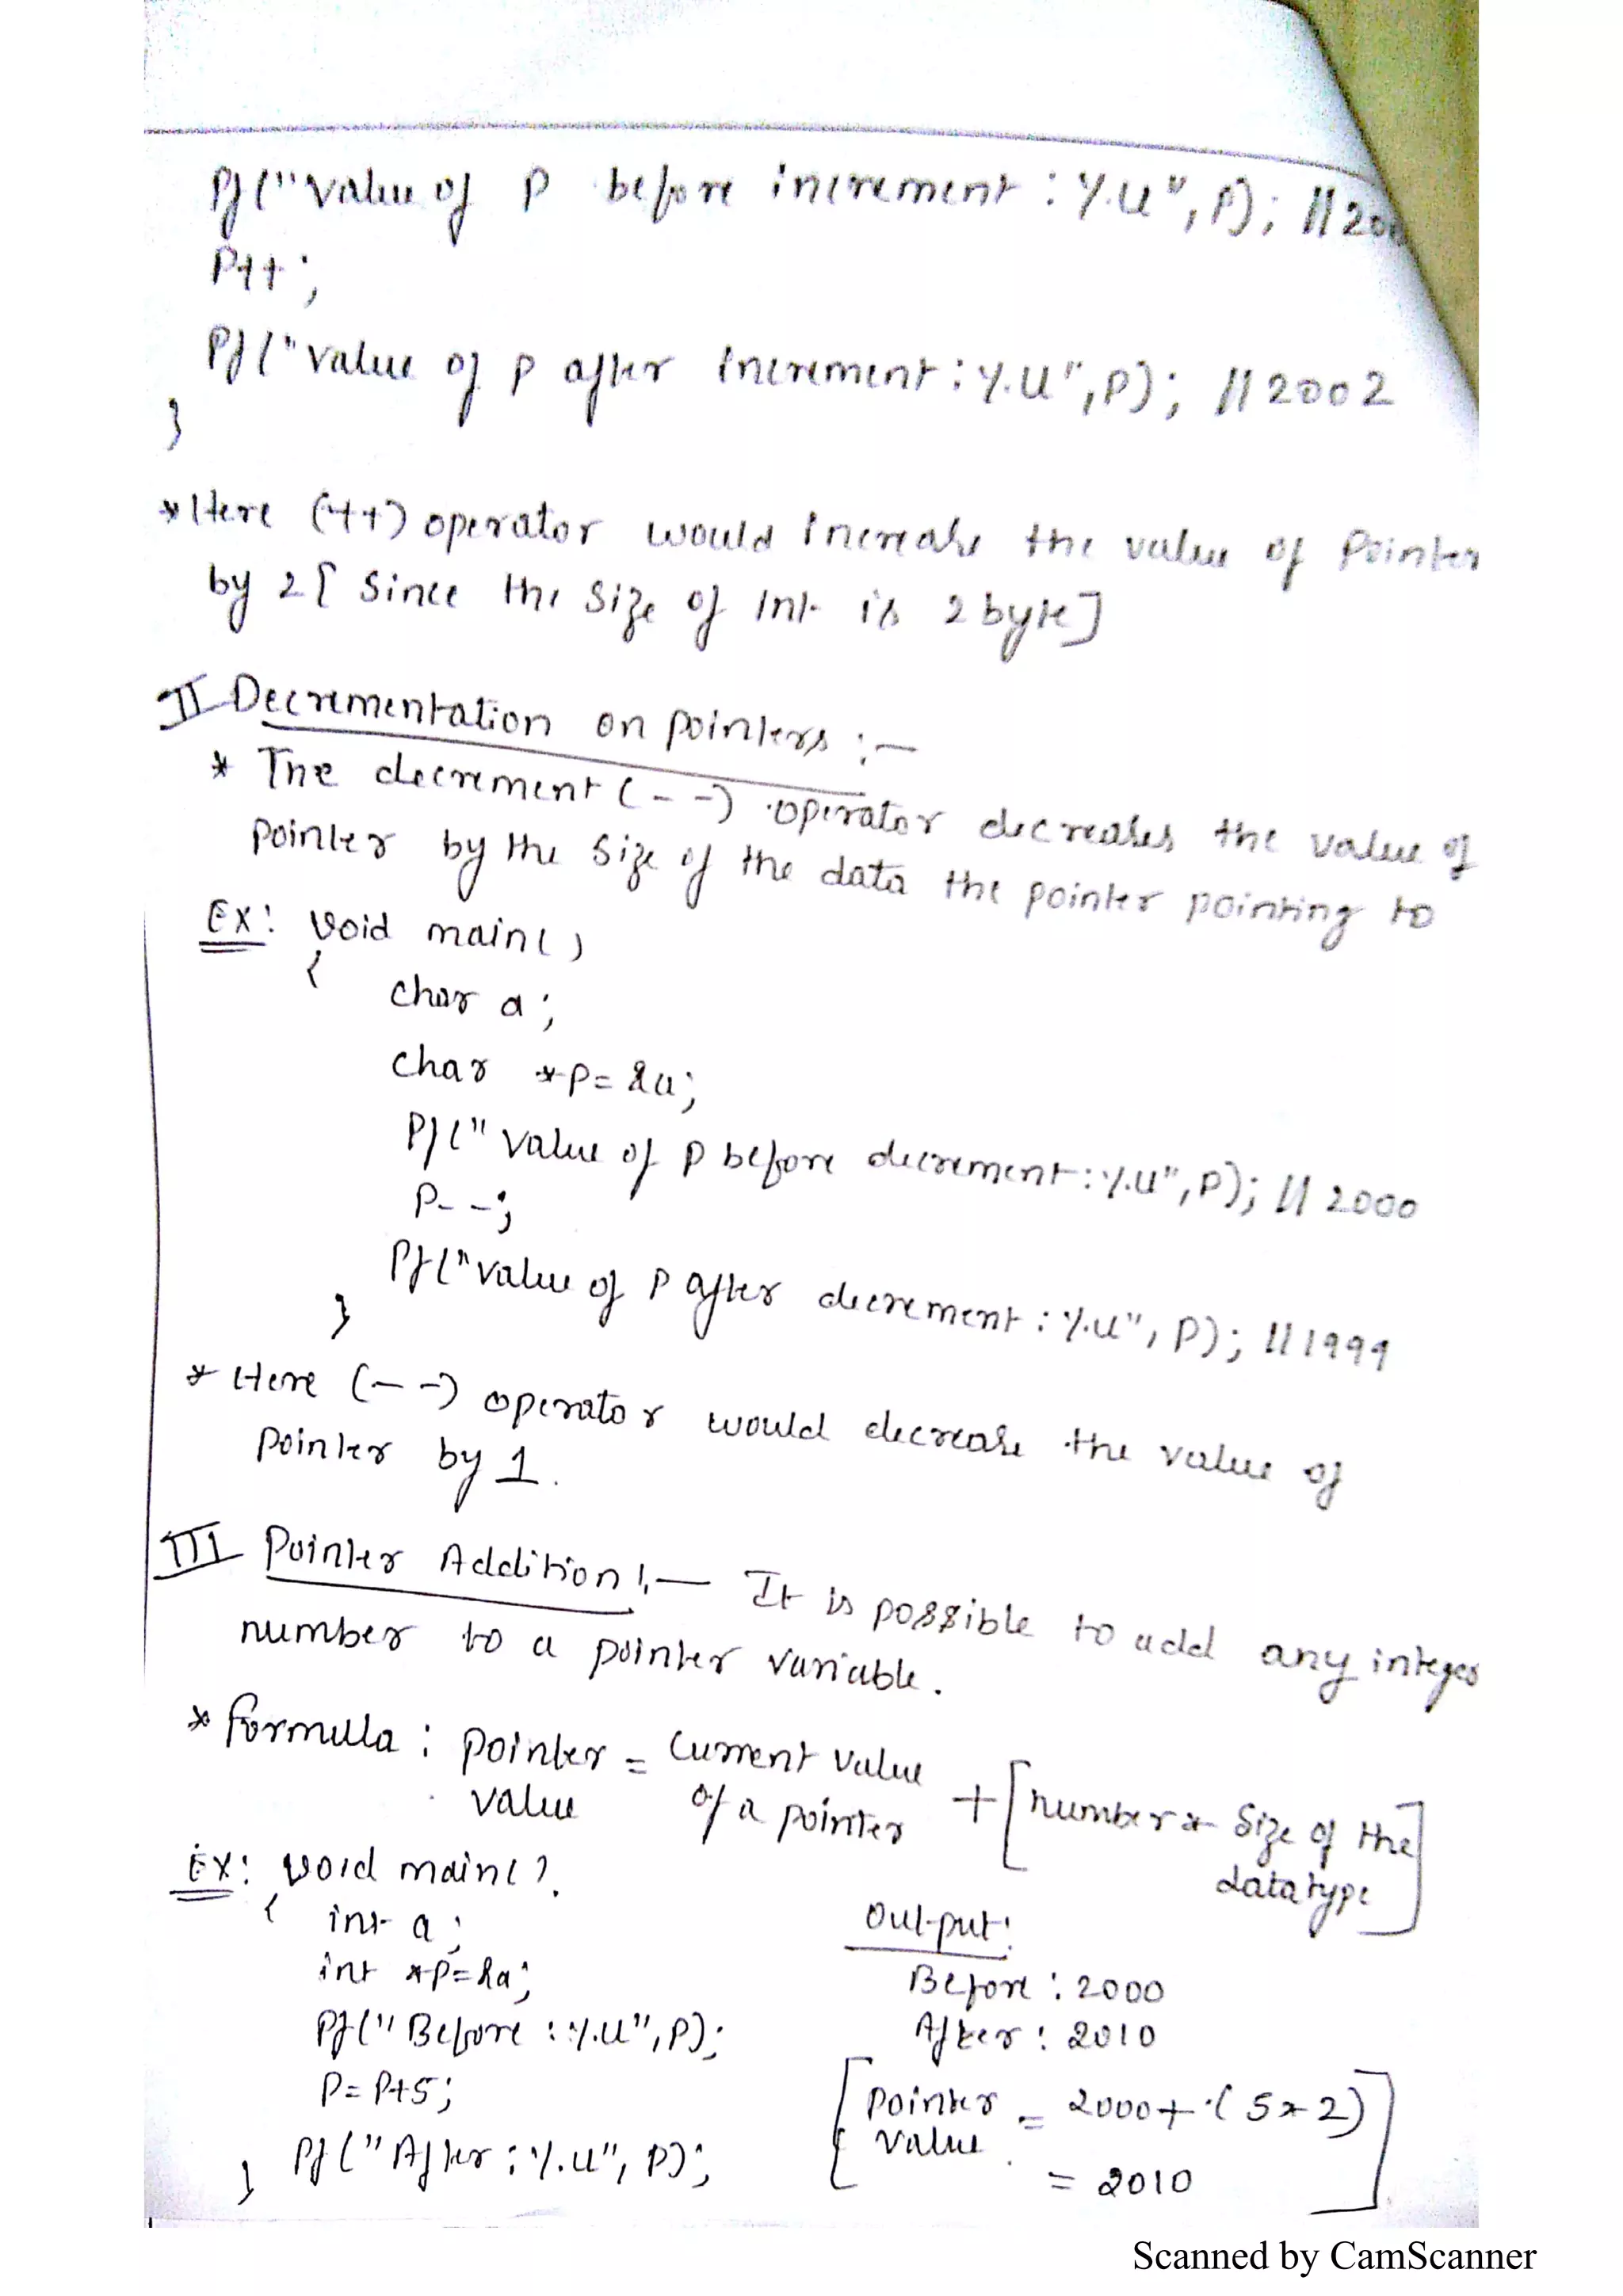 Pf("value of P before increment : %u", P); //200
P++;
Pf("value of P after increment : %u", P); //2002
}
*Here (++) operator would increase the value of Pointer
by 2 [ Since the size of Int is 2 byte]
II Decrementation on pointers :-
* The decrement (--) operator decreases the value of
pointer by the size of the data the pointer pointing to
Ex: void main()
{
char a;
char *P=&a;
Pf("value of P before decrement : %u", P); // 2000
P--;
Pf("value of P after decrement : %u", P); // 1999
}
* Here (--) operator would decrease the value of
pointer by 1.
III Pointer Addition :- It is possible to add any integer
number to a pointer variable.
* Formulla : pointer value = Current value of a pointer + [number * size of the datatype]
Ex: void main()
{
int a;
int *P=&a;
Pf("Before : %u", P);
P=P+5;
Pf("After : %u", P);
}
Output:
Before : 2000
After : 2010
[Pointer value = 2000+(5*2)
= 2010]
Scanned by CamScanner